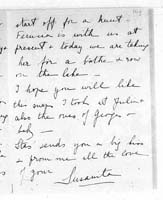 start off for a hunt.
is with us at
present & today we are taking
her for a bathe & row
on the lake —
I hope you will like
this snaps I took it
also the ones of Georges —
baby —
sends you a big kiss
& from me all the love
of your
Susanita